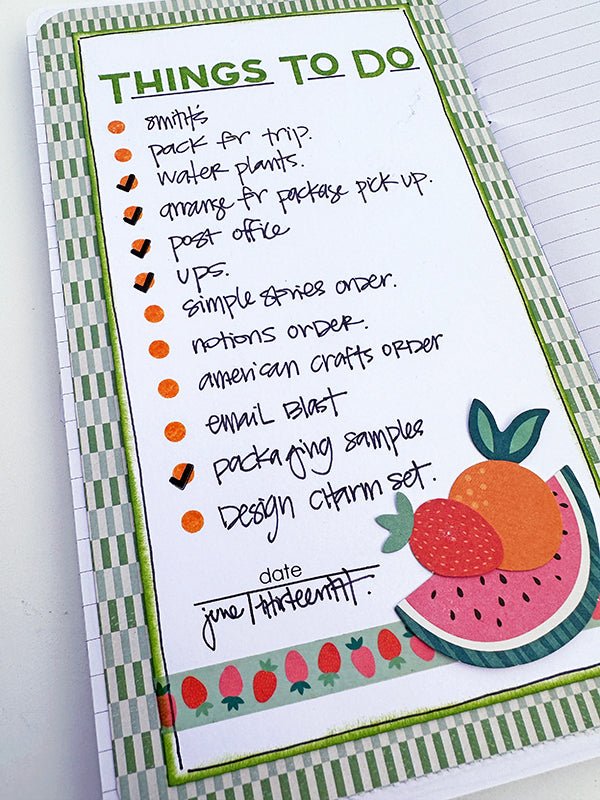 THINGS TO DO
smith's
pack for trip.
water plants.
arrange for package pick up.
post office
ups.
simple stories order.
notions order.
american crafts order
email blast
packaging samples
design charm set.
date
june thirteenth.